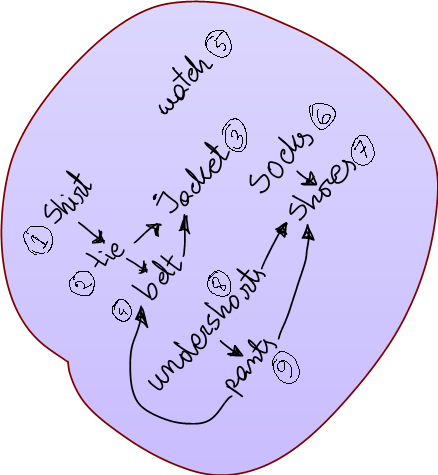 watch 5
Shirt 1
tie 2
Jacket 3
belt 4
Socks 6
Shoes 7
undershorts 8
pants 9